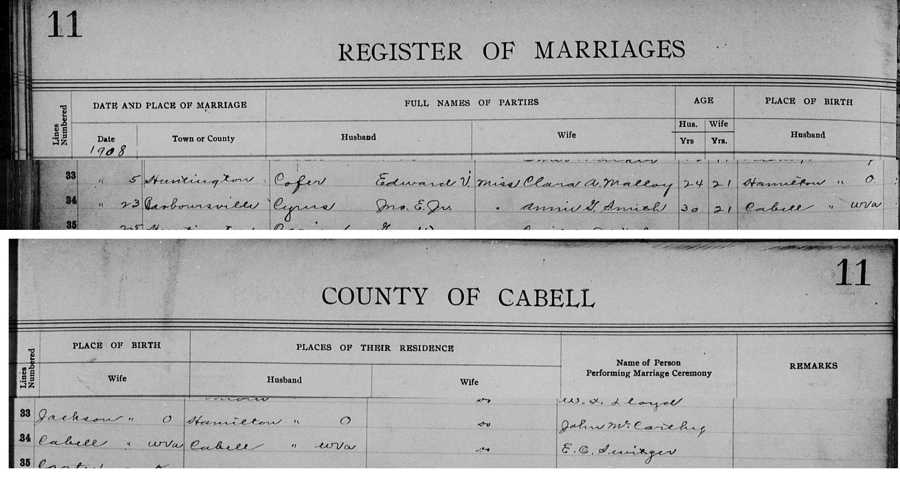 11
REGISTER OF MARRIAGES
Lines Numbered
DATE AND PLACE OF MARRIAGE FULL NAMES OF PARTIES AGE PLACE OF BIRTH
Date Town or County Husband Wife Hus. Wife Husband
1908 Yrs Yrs.
33 " 5 Huntington Cofer Edward V. Miss Clara A. Malloy 24 21 Hamilton " O
34 " 23 Barboursville Cyrus Jno. E. Jr. " Annie G. 30 21 Cabell " WVa
35
11
COUNTY OF CABELL
Lines Numbered
PLACE OF BIRTH PLACES OF THEIR RESIDENCE Name of Person Performing Marriage Ceremony REMARKS
Wife Husband Wife
W. L. Lloyd
33 Jackson " O Hamilton " O " John McCarthy
34 Cabell " WVa Cabell " WVa " E. C.
35